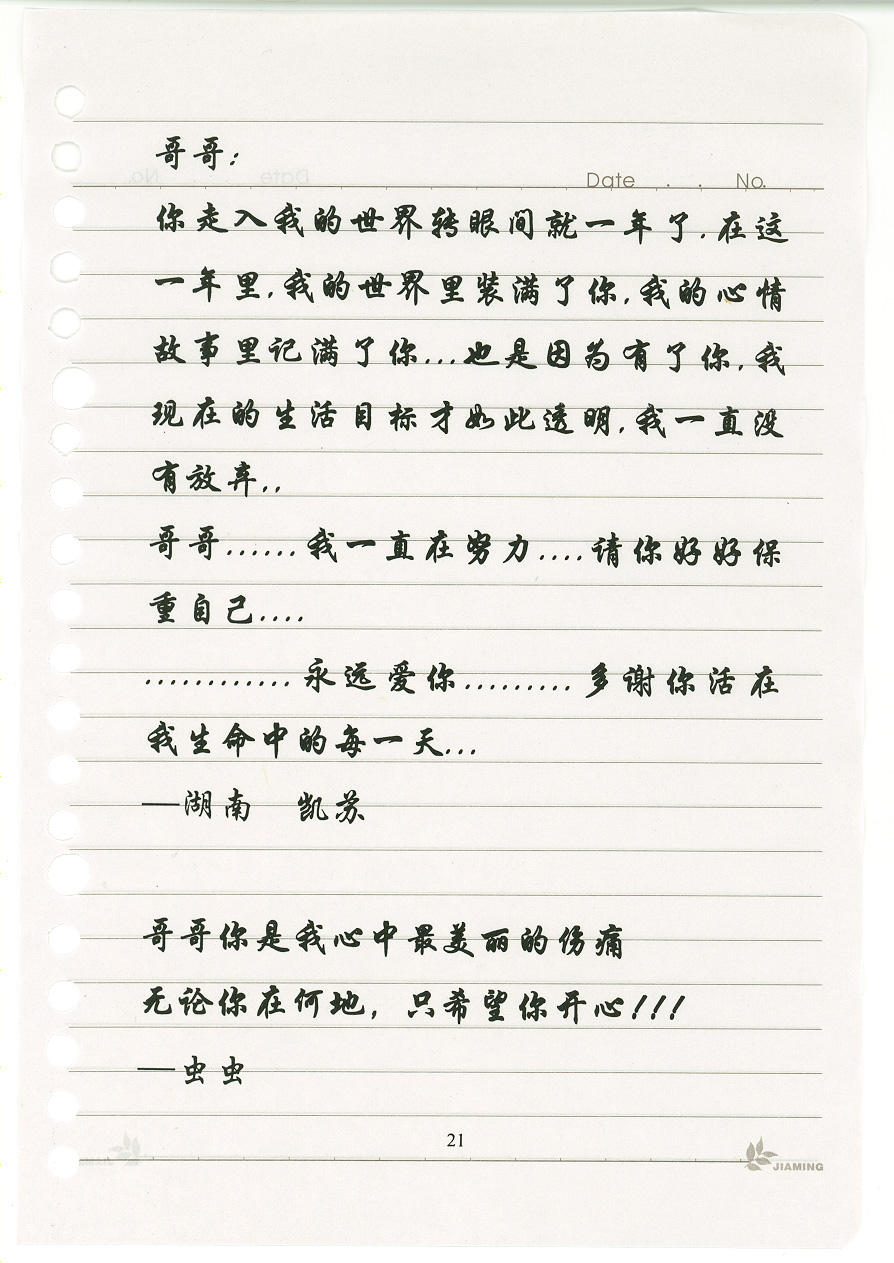 哥哥：
Date . . No.
你走入我的世界转眼间就一年了.在这
一年里.我的世界里装满了你.我的心情
故事里记满了你...也是因为有了你.我
现在的生活目标才如此透明.我一直没
有放弃..
哥哥......我一直在努力....请你好好保
重自己....
............永远爱你.........多谢你活在
我生命中的每一天...
—湖南 凯苏
哥哥你是我心中最美丽的伤痛
无论你在何地，只希望你开心!!!
—虫虫
21
JIAMING